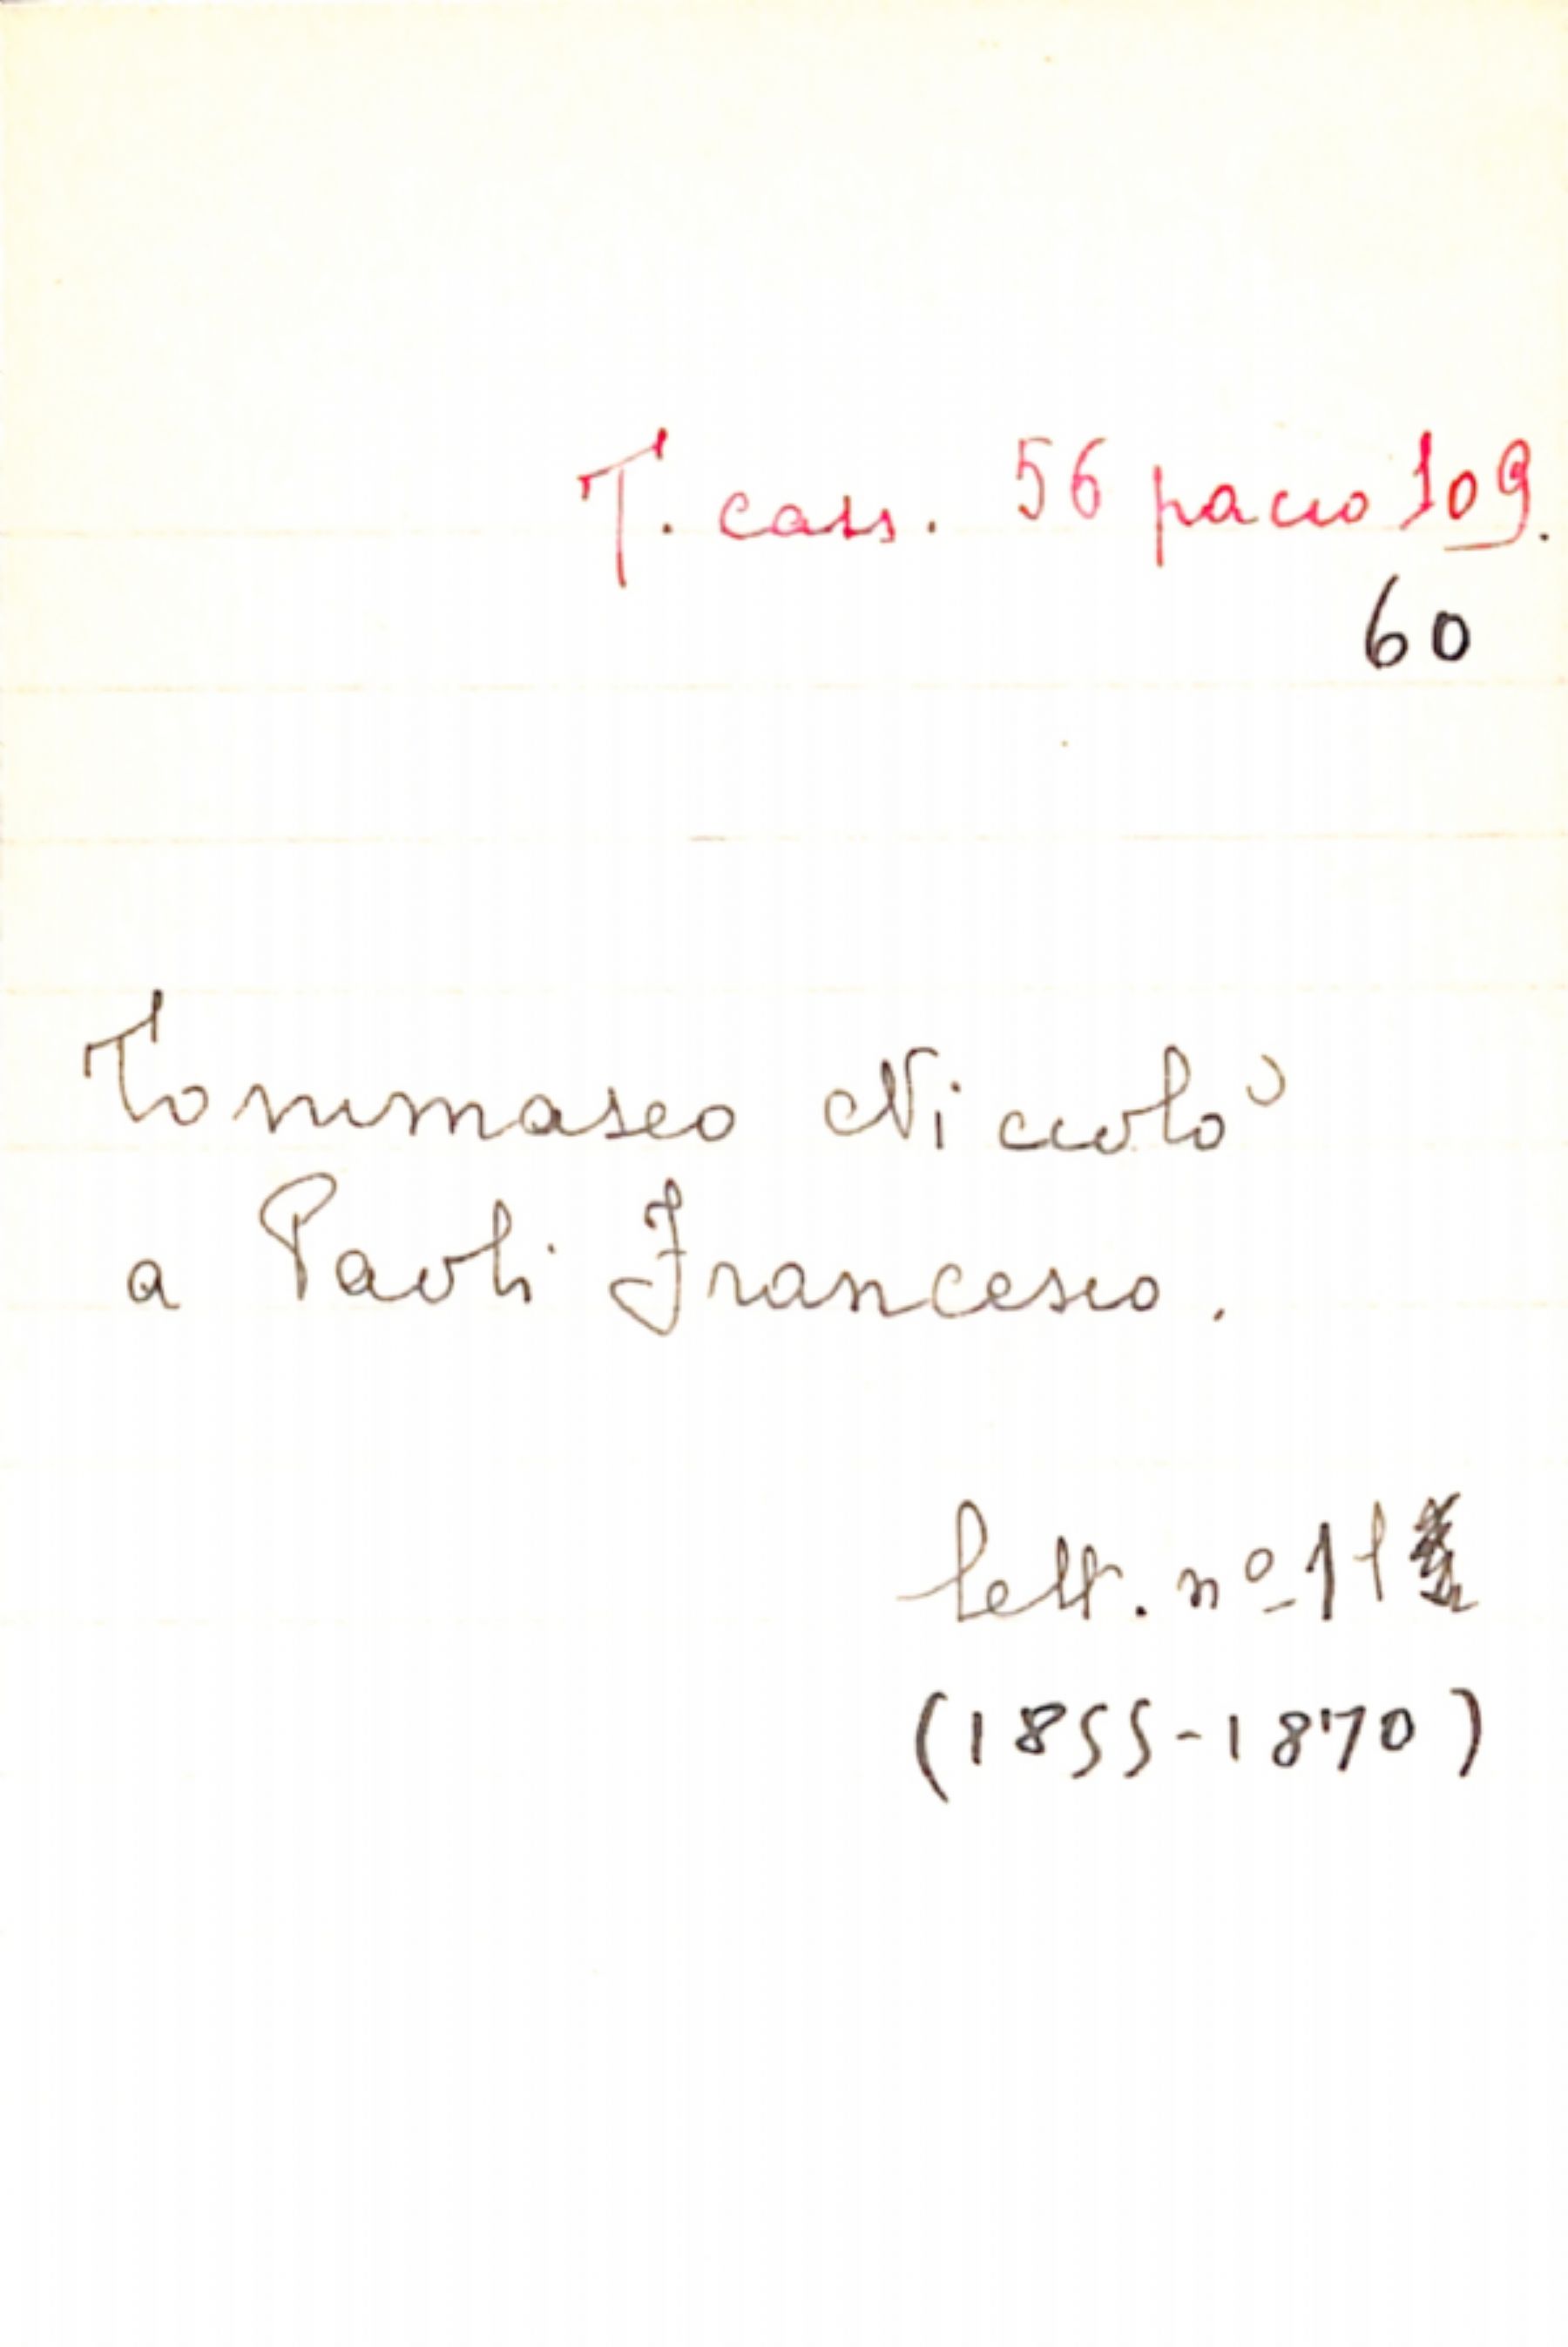 T. cass. 56 pacco 109.
60
Tommaseo Niccolò
a Paoli Francesco.
lett. nº 11
(1855-1870)